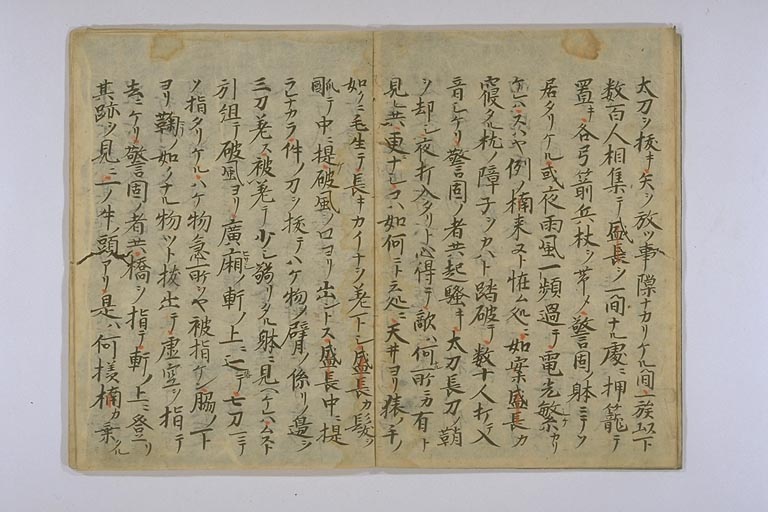 太刀ヲ拔キ矢ヲ放ツ事隙ナカリケル間一族以下
数百人相集テ盛長ヲ一間ナル處ニ押籠テ
置キ各弓箭兵杖ヲ帯メ警固ノ躰ニテソ
居タリケル或夜雨風一頻過テ電光繁カリ
ケレハスハヤ例ノ楠来ヌト恠ム処ニ如案盛長カ
寝タル枕ノ障子ヲカハト踏破テ数十人打テ入
音シケリ警固ノ者共起騒キ太刀長刀ノ鞘
ヲ却シ夜打入タリト心得テ敵ハ何所ニカ有ト
見レ共更ナシコハ如何ニト云処ニ天井ヨリ猿ノ手ノ
如クニ毛生テ長キカイナヲ差下シ盛長カ髪ヲ
抓テ中ニ提ケ破風ノ口ヨリ出ントス盛長中ニ提
ラレナカラ件ノ刀ヲ拔テハケ物ノ臂ノ係リノ邊ヲ
三刀差ス被差テ少シ弱リタル躰ニ見ヘケレハムスト
引組テ破風ヨリ廣廂ノ軒ノ上ニ 七刀マテ
ソ指タリケルハケ物急所ヲヤ被指ケン脇ノ下
ヨリ鞠ノ如クナル物ツト拔出テ虚空ヲ指テ
去ニケリ警固ノ者共橋ヲ指テ軒ノ上ニ登リ
其跡ヲ見ニ一ノ牛ノ頭アリ是ハ何様楠カ乗タル